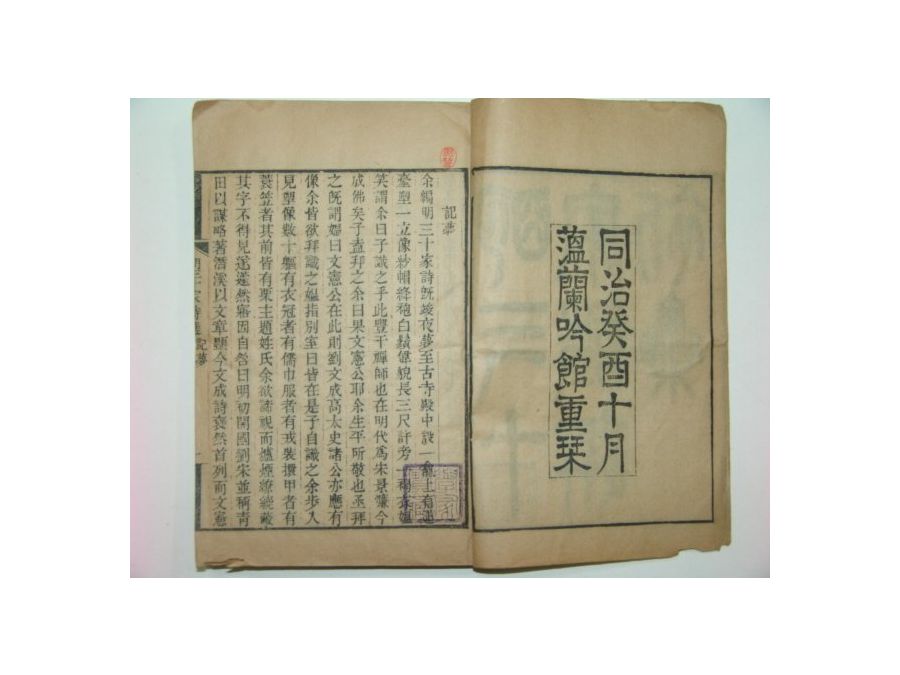 同治癸酉十月
蘊蘭吟館重栞
記夢
余編明三十家詩既竣夜夢至古寺殿中設一龕上有蓮
臺塑一立像紗帽絳袍白鬚偉貌長三尺許旁一褐衣媼
笑謂余曰子識之乎此豐干禪師也在明代爲宋景濂今
成佛矣子盍拜之余曰果文憲公耶余生平所敬也亟拜
之既謂媼曰文憲公在此則劉文成高太史諸公亦應有
像余皆欲拜識之媼指別室曰皆在是子自識之余步入
見塑像數十軀有衣冠者有儒巾服者有戎裝擐甲者有
蓑笠者其前皆有栗主題姓氏余欲諦視而爐煙繚繞蔽
其字不得見遂遽然寤因自咎曰明初開國劉宋並稱青
田以謀略著潛溪以文章顯今文成詩裒然首列而文憲
記夢